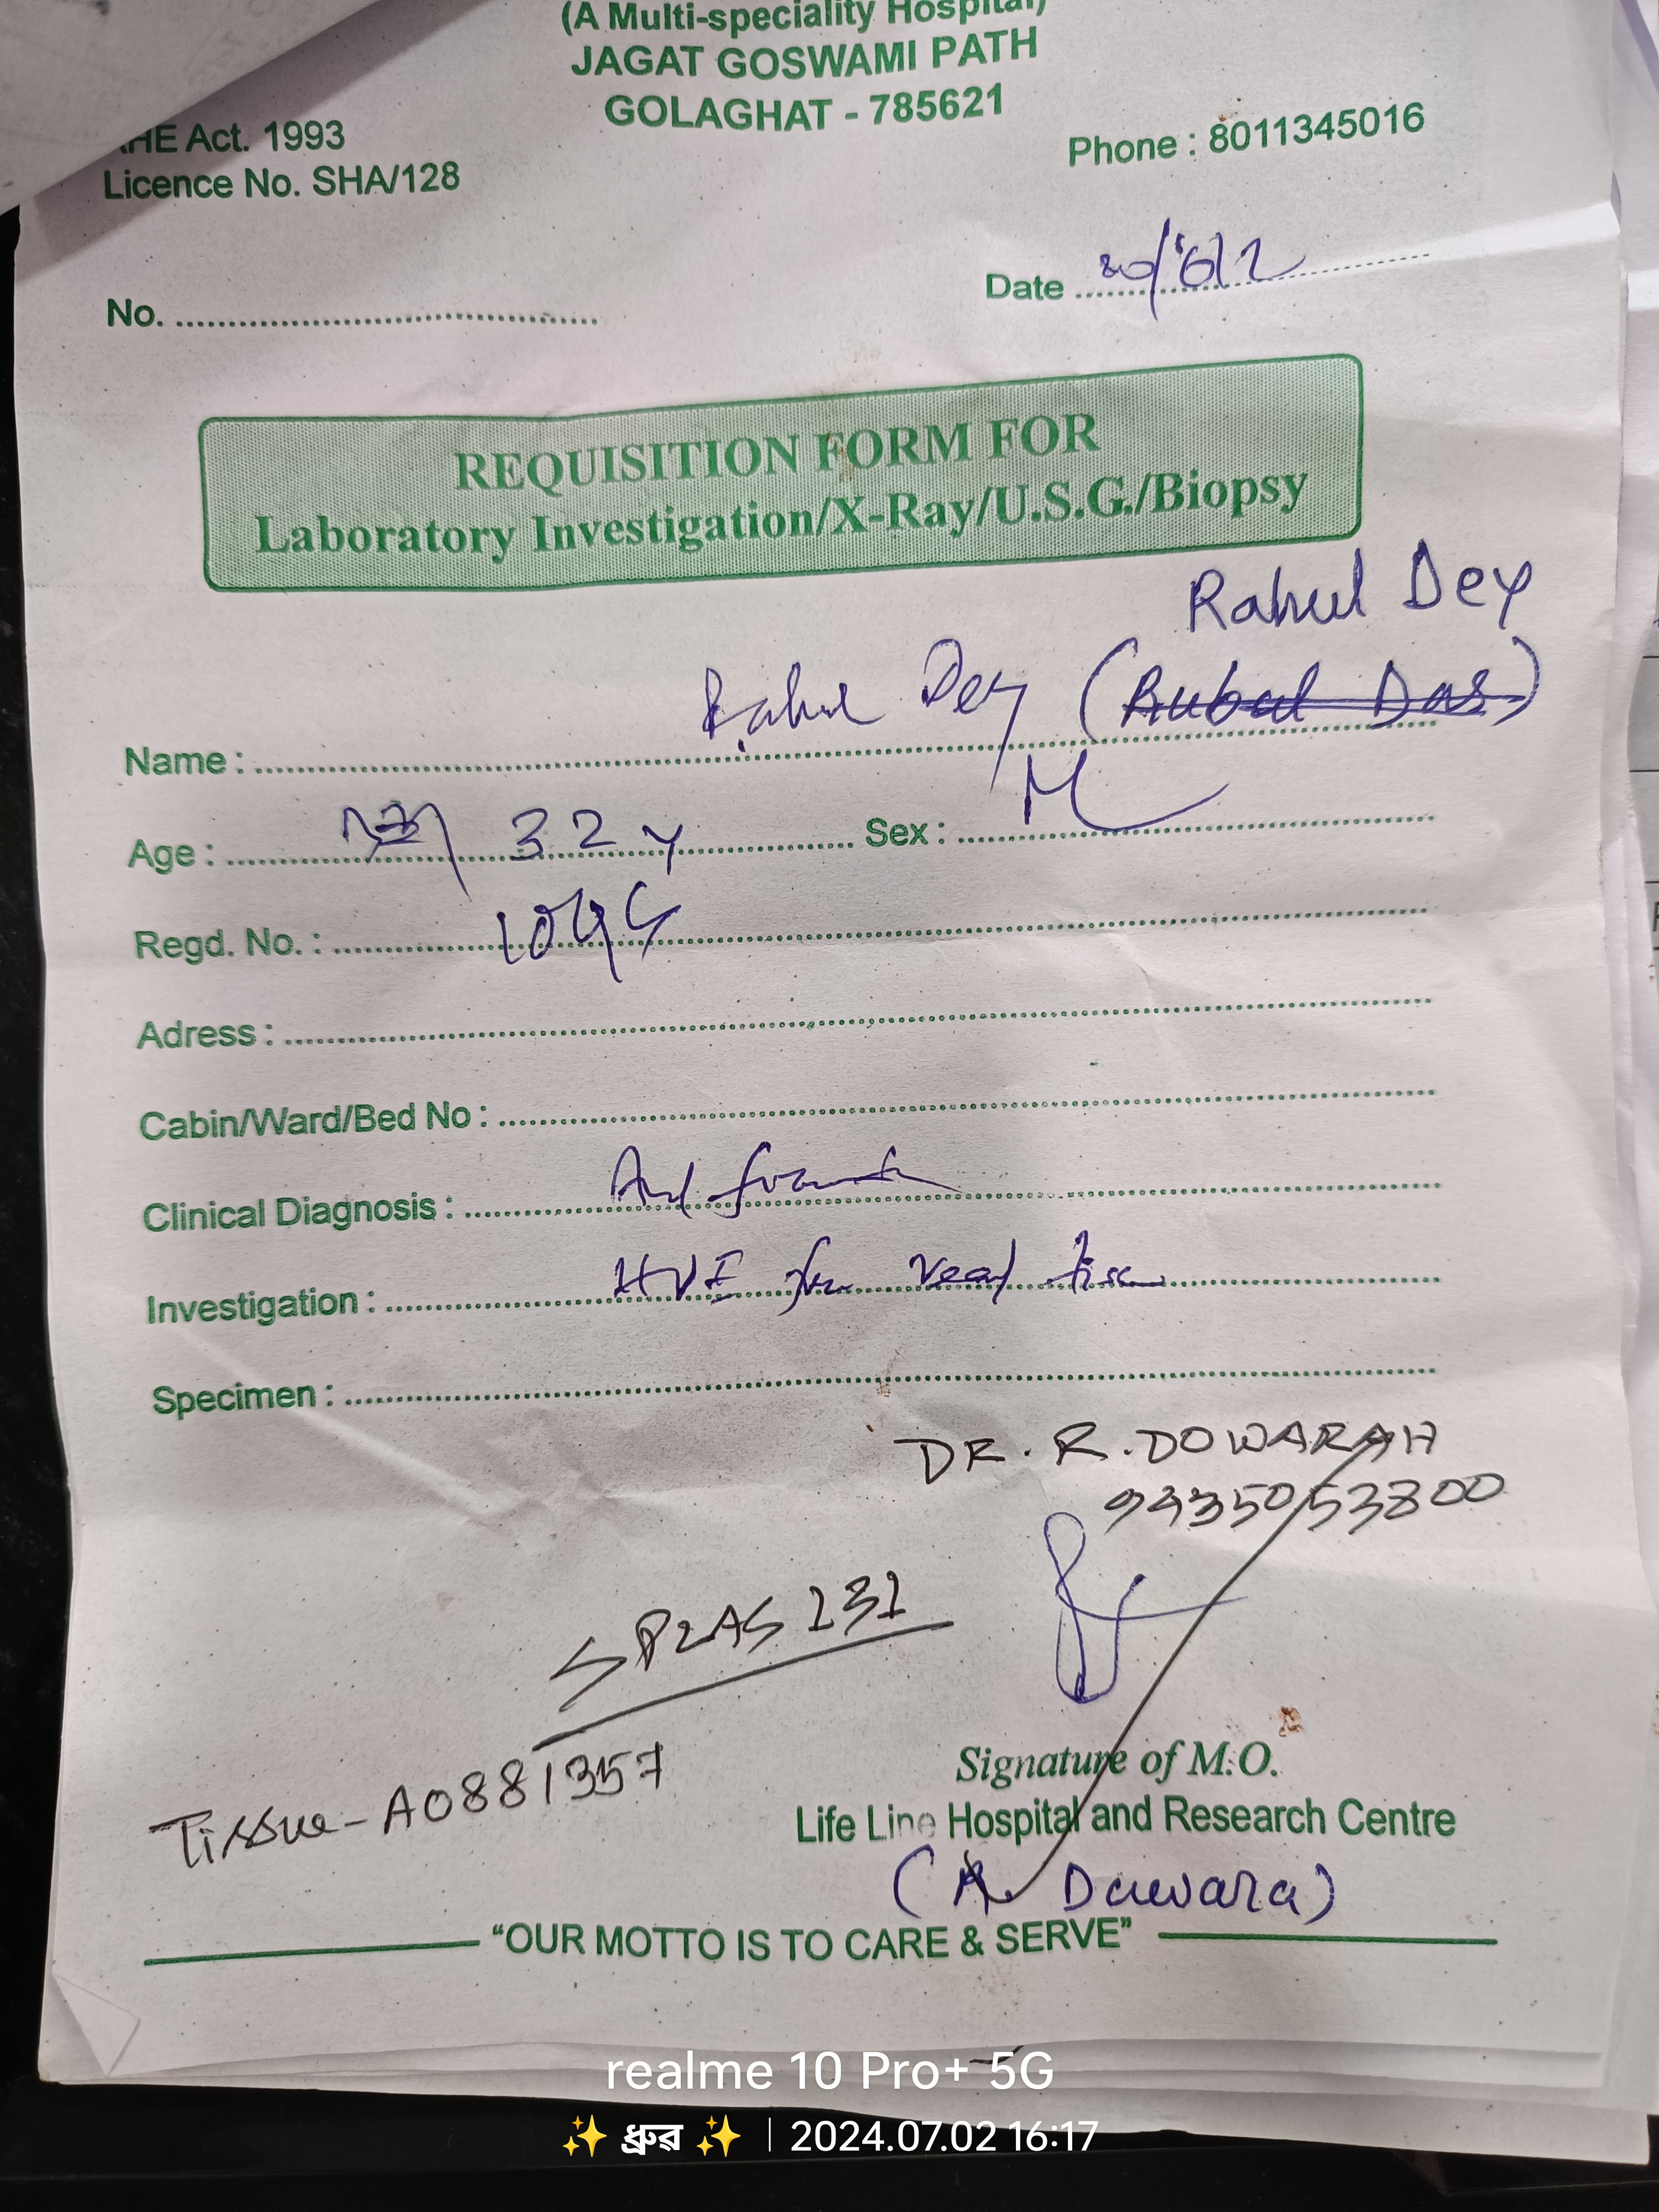 (A Multi-speciality Hospital)
JAGAT GOSWAMI PATH
GOLAGHAT - 785621
HE Act. 1993
Licence No. SHA/128
Phone : 8011345016
No.
Date
REQUISITION FORM FOR
Laboratory Investigation/X-Ray/U.S.G./Biopsy
Rahul Dey
Name : Rahul Dey (Rubul Das)
Age : 32 y Sex : M
Regd. No. :
Adress :
Cabin/Ward/Bed No :
Clinical Diagnosis :
Investigation :
Specimen :
DR. R. DOWARAH
9435053800
Tissue-A0881357
Signature of M.O.
Life Line Hospital and Research Centre
Dawara)
"OUR MOTTO IS TO CARE & SERVE"
realme 10 Pro+ 5G
✨ ধ্ৰুৱ ✨ | 2024.07.02 16:17